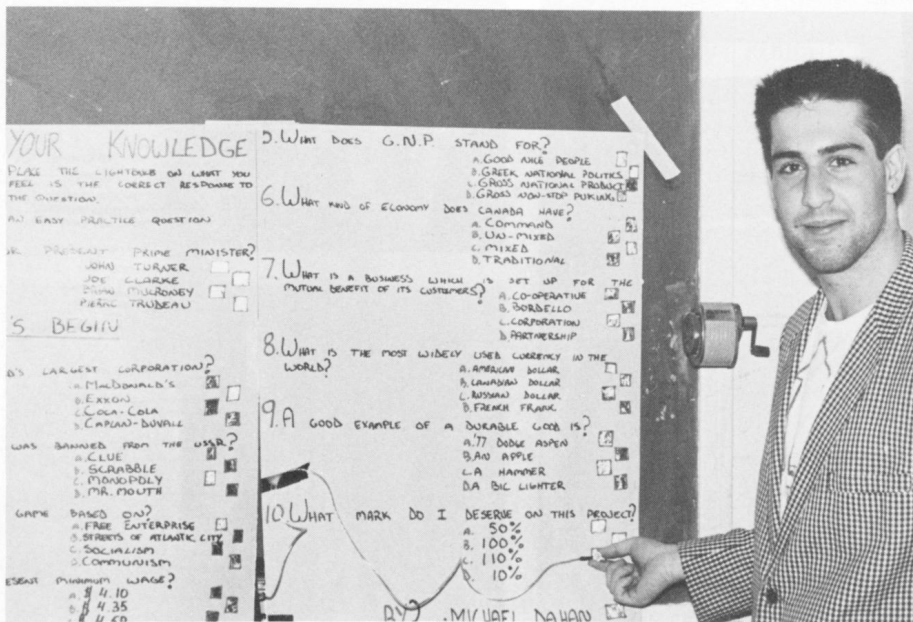 YOUR KNOWLEDGE
PLACE THE LIGHTBULB ON WHAT YOU
FEEL IS THE CORRECT RESPONSE TO
THE QUESTION.
AN EASY PRACTICE QUESTION
PRESENT PRIME MINISTER?
JOHN TURNER
JOE CLARKE
BRIAN MULRONEY
PIERRE TRUDEAU
'S BEGIN
D'S LARGEST CORPORATION?
A. MACDONALD'S
B. EXXON
C. COCA-COLA
D. CAPLAN-DUVALL
WAS BANNED FROM THE USSR?
A. CLUE
B. SCRABBLE
C. MONOPOLY
D. MR. MOUTH
GAME BASED ON?
A. FREE ENTERPRISE
B. STREETS OF ATLANTIC CITY
C. SOCIALISM
D. COMMUNISM
ESENT MINIMUM WAGE?
A. $ 4.10
B. $ 4.35
5. WHAT DOES G.N.P. STAND FOR?
A. GOOD NICE PEOPLE
B. GREEK NATIONAL POLITICS
C. GROSS NATIONAL PRODUCT
D. GROSS NON-STOP PUKING
6. WHAT KIND OF ECONOMY DOES CANADA HAVE?
A. COMMAND
B. UN-MIXED
C. MIXED
D. TRADITIONAL
7. WHAT IS A BUSINESS WHICH IS SET UP FOR THE
MUTUAL BENEFIT OF ITS CUSTOMERS?
A. CO-OPERATIVE
B. BORDELLO
C. CORPORATION
D. PARTNERSHIP
8. WHAT IS THE MOST WIDELY USED CURRENCY IN THE
WORLD?
A. AMERICAN DOLLAR
B. CANADIAN DOLLAR
C. RUSSIAN DOLLAR
D. FRENCH FRANK
9. A GOOD EXAMPLE OF A DURABLE GOOD IS?
A. '77 DODGE ASPEN
B. AN APPLE
C. A HAMMER
D. A BIC LIGHTER
10. WHAT MARK DO I DESERVE ON THIS PROJECT?
A. 50%
B. 100%
C. 110%
D. 10%
BY MICHAEL DAHAN